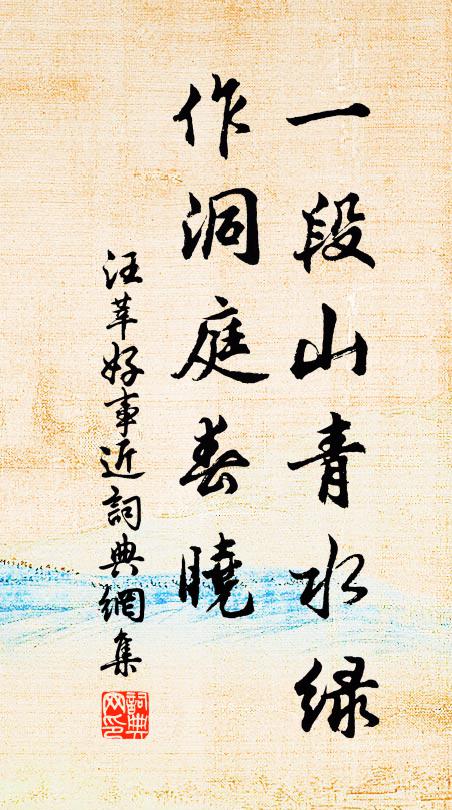 一段山青水绿
作洞庭春曉
汪莘好事近詞典網集
詞典網印